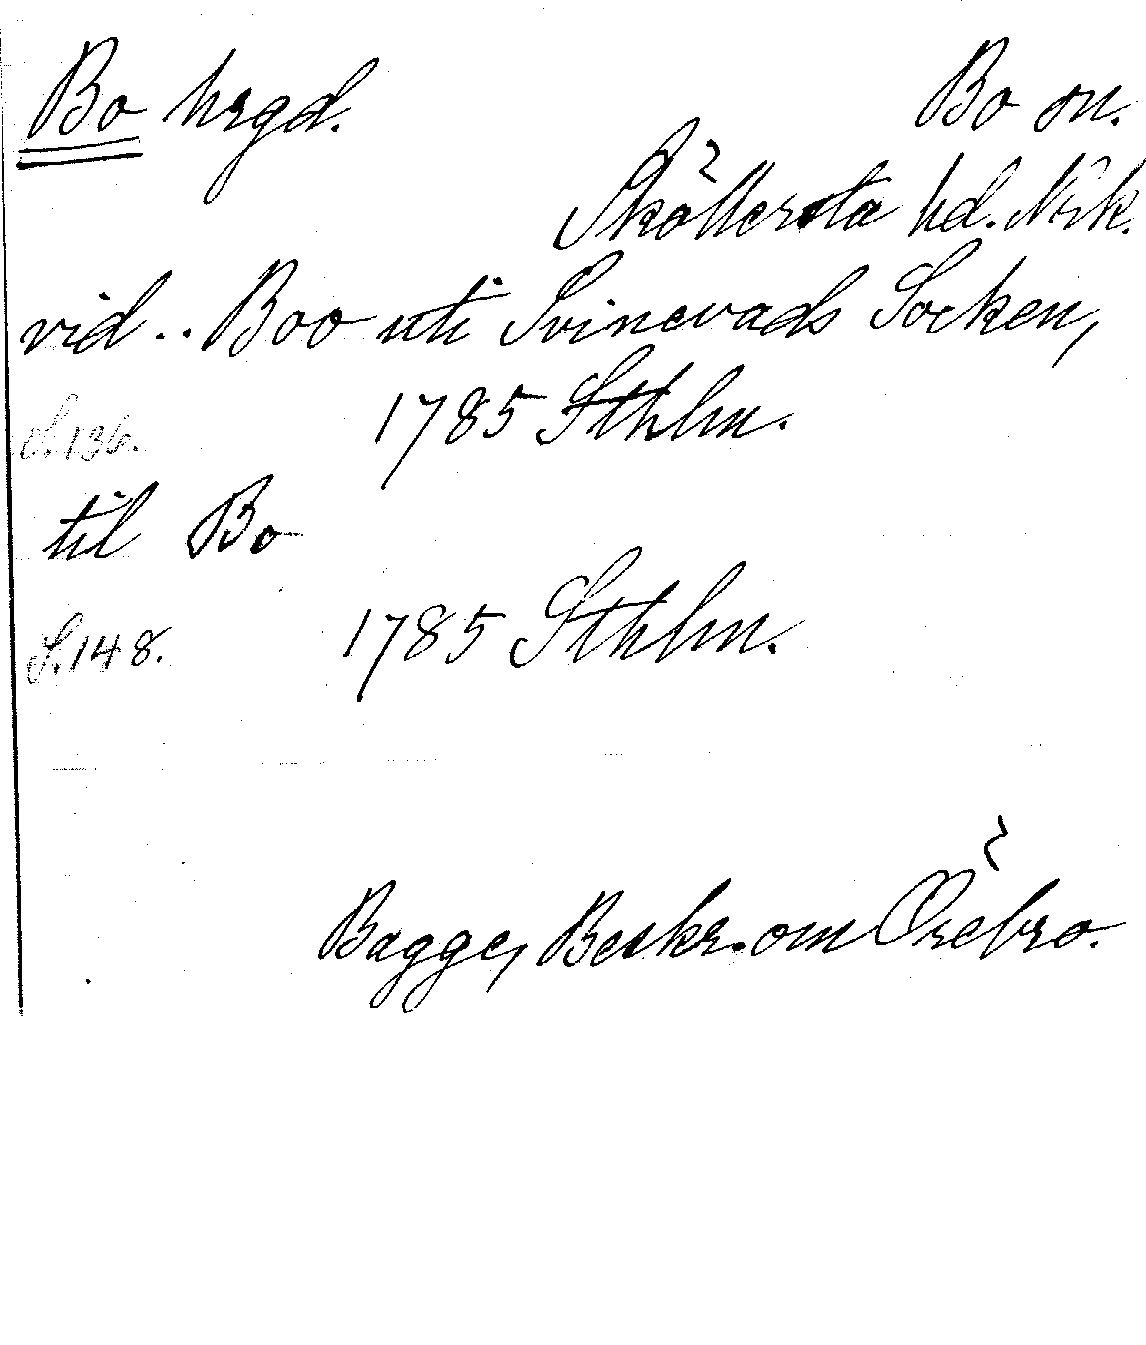 Bo hrgd.
Bo sn.
Sköllersta hd. Nrk.
vid .. Boo uti Svinevads Socken,
S. 136. 1785 Sthlm.
til Bo
S. 148. 1785 Sthlm.
Bagge, Beskr. om Örebro.